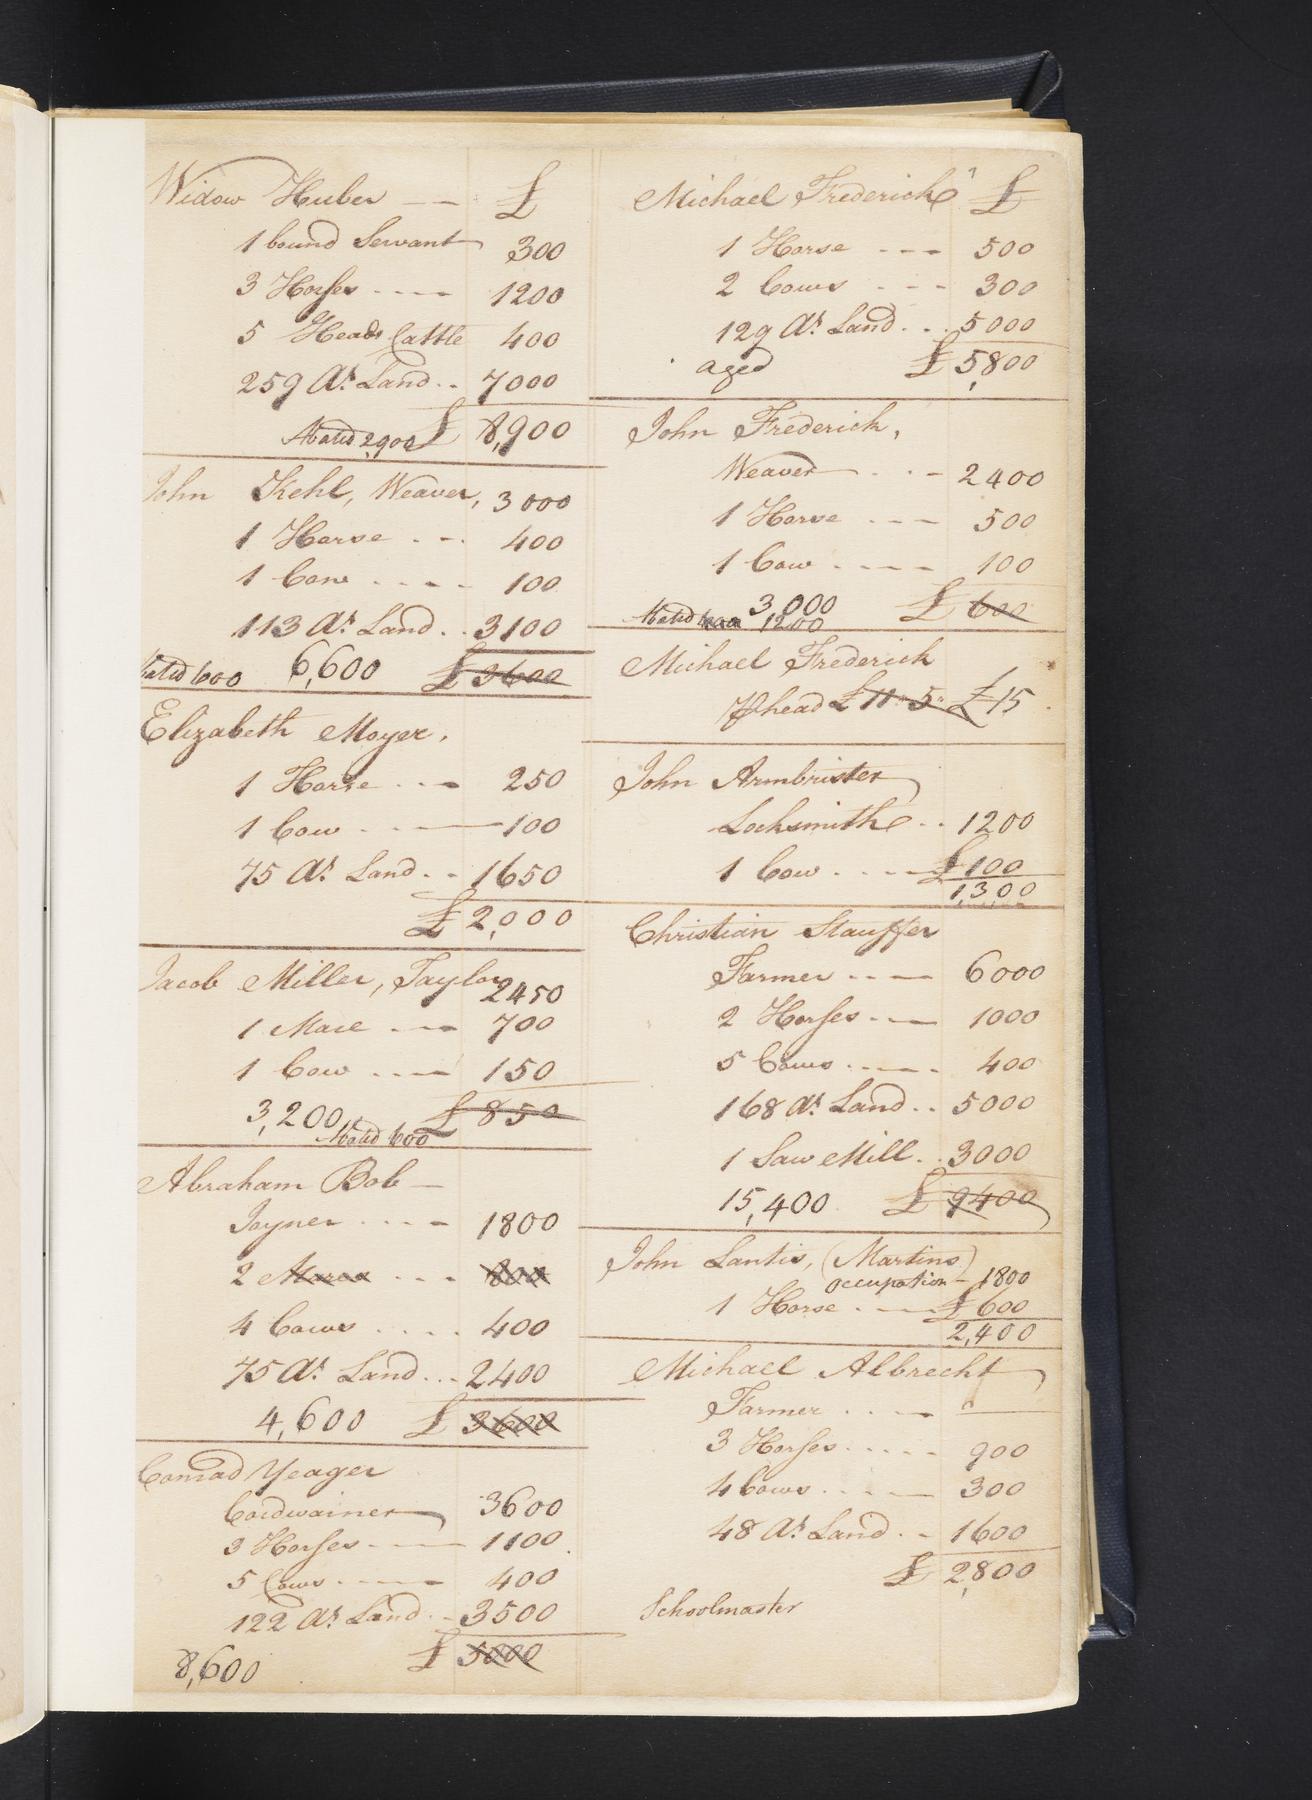 Widow Huber -- £
1 bound Servant 300
3 Horses ---- 1200
5 Heads Cattle 400
259 As. Land .. 7000
Abated 2,900 £ 8,900
John Kehl, Weaver, 3000
1 Horse ... 400
1 Cow .... 100
113 As. Land .. 3100
Abated 600 6,600 £ 3600
Elizabeth Moyer.
1 Horse ... 250
1 Cow ... 100
75 As. Land .. 1650
£ 2,000
Jacob Miller, Taylor 2450
1 Mare ... 700
1 Cow .... 150
3,200 Abated 600 £ 850
Abraham Bob -
Joyner .... 1800
2 Mares ... 800
4 Cows .... 400
75 As. Land ... 2400
4,600 £ 3600
Conrad Yeager
Cordwainer 3600
3 Horses ... 1100
5 Cows .... 400
122 As. Land .. 3500
8,600 £ 5000
Michael Frederick £
1 Horse --- 500
2 Cows --- 300
129 As. Land ... 5000
aged £ 5,800
John Frederick,
Weaver ... 2400
1 Horse --- 500
1 Cow .... 100
3,000 £ 600
Abated 1200
Michael Frederick
⅌ head £ 11 " 5 " £ 15
John Armbrister
Locksmith .. 1200
1 Cow .... £ 100
1,300
Christian Stauffer
Farmer .... 6000
2 Horses ... 1000
5 Cows .... 400
168 As. Land .. 5000
1 Saw Mill .. 3000
15,400 £ 9400
John Lantis, (Martins)
occupation - 1800
1 Horse ... £ 600
2,400
Michael Albrecht
Farmer ....
3 Horses .... 900
4 Cows .... 300
48 As. Land .. 1600
£ 2,800
Schoolmaster